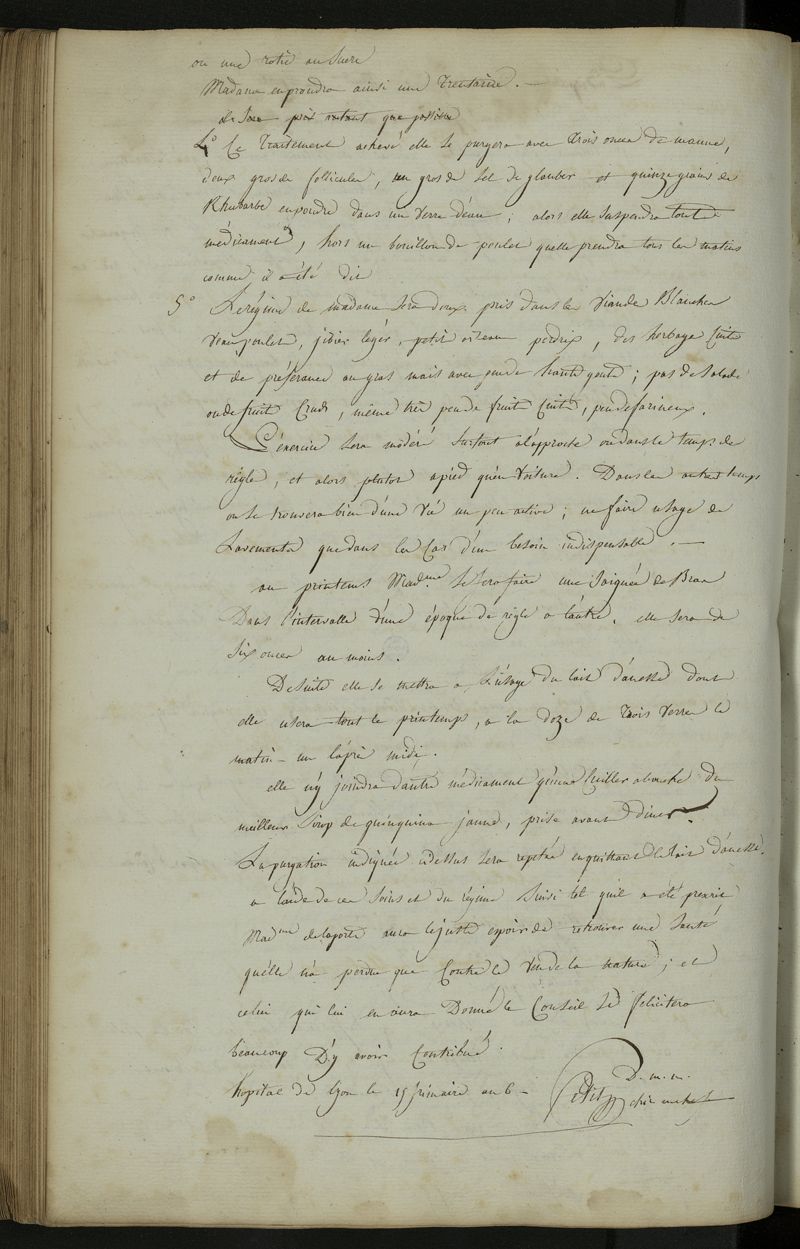 ou une rotie au sucre
Madame en prendra ainsi une trentaine. —
de suite autant que possible
4° Ce traitement achevé elle se purgera avec trois onces de manne,
deux gros de follicules, un gros de sel de glauber et quinze grains de
Rhubarbe en poudre dans un verre d'eau ; alors elle suspendra tout
médicament, hors un bouillon de poulet quelle prendra tous les matins
comme il a été dit
5° Le régime de madame sera doux. pris dans les viandes Blanches
veau, poulet, jibier léger, petit oiseau perdrix, des herbages Cuits
et de préférance au gras mais avec peu de haut gout ; pas de salade
ou de fruit Cruds, même très peu de fruit Cuits, peu de farineux.
L'éxercice sera modéré surtout a l'approche ou dans le temps des
règles, et alors plutot a pied qu'en voiture. Dans les autres temps
on se trouvera bien d'une vie un peu active ; ne faire usage de
Lavements que dans les Cas d'un besoin indispensable. —
au printems Mad.me se fera faire une saignée du Bras
Dans l'intervalle d'une époque de règle a l'autre. elle sera de
six onces au moins.
De suite elle se mettra a L'usage du lait d'anesse dont
elle usera tout le printemps, a la doze de trois verres le
matin — un l'après midi.
elle n'y joindra d'autre médicament qu'une Cuiller a bouche du
meilleur Sirop de quinquina jaune, prise avant diner.
La purgation indiquée ci dessus sera repetée en quittant le lait d'anesse.
a l'aide de ces soins et du régime suivi tel qu'il a été prescrit
Mad.me delaporte aura le juste espoir de retrouver une santé
qu'elle n'a perdue que Contre le vœu de la nature ; et
celui qui lui en aura Donné le Conseil se felicitera
beaucoup D'y avoir Contribué.
hopital de Lyon le 15 frimaire an 6 — Petit D. m. m.